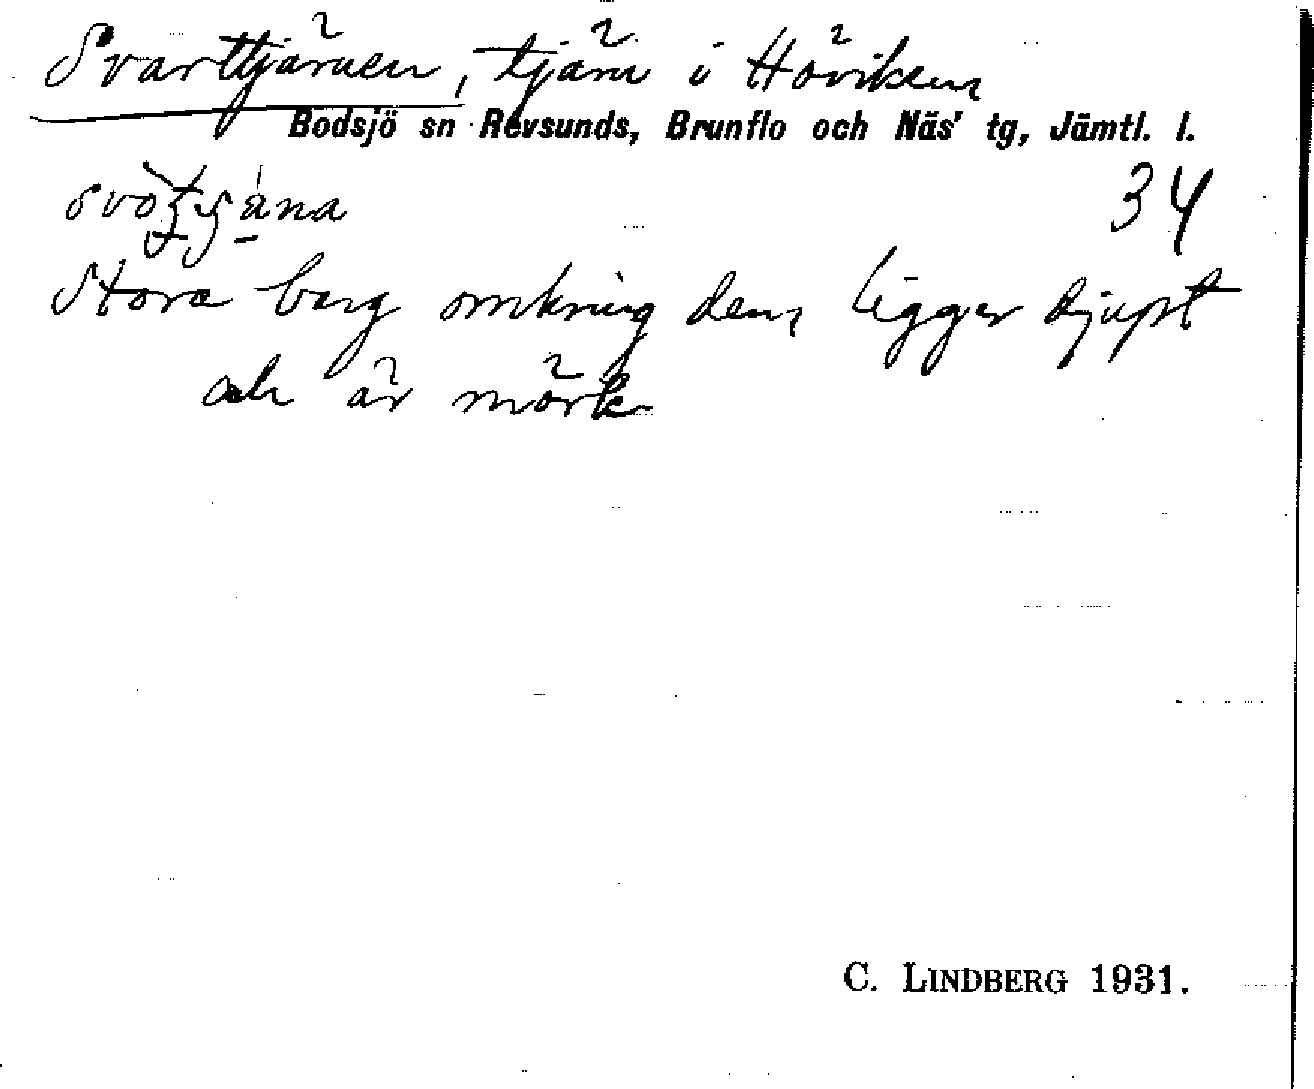 Svarttjärnen, tjärn i Höviken
Bodsjö sn Revsunds, Brunflo och Näs' tg, Jämtl. l.
34
Stora berg omkring den, ligger djupt
och är mörk
C. LINDBERG 1931.